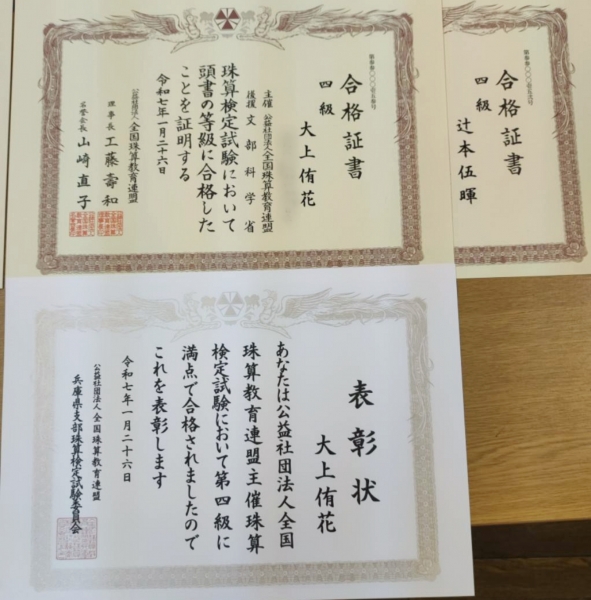 合格証書
四級
大上侑花
主催 公益社団法人全国珠算教育連盟
後援 文部科学省
珠算検定試験において
頭書の等級に合格した
ことを証明する
令和七年一月二十六日
公益社団法人全国珠算教育連盟
理事長 工藤壽和
名誉会長 山崎直子
合格証書
四級
辻本伍暉
表彰状
大上侑花
あなたは公益社団法人全国
珠算教育連盟主催珠算
検定試験において第四級に
満点で合格されましたので
これを表彰します
令和七年一月二十六日
公益社団法人全国珠算教育連盟
兵庫県支部珠算検定試験委員会